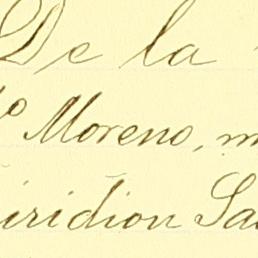 De la
º Moreno, m
iridion Sa